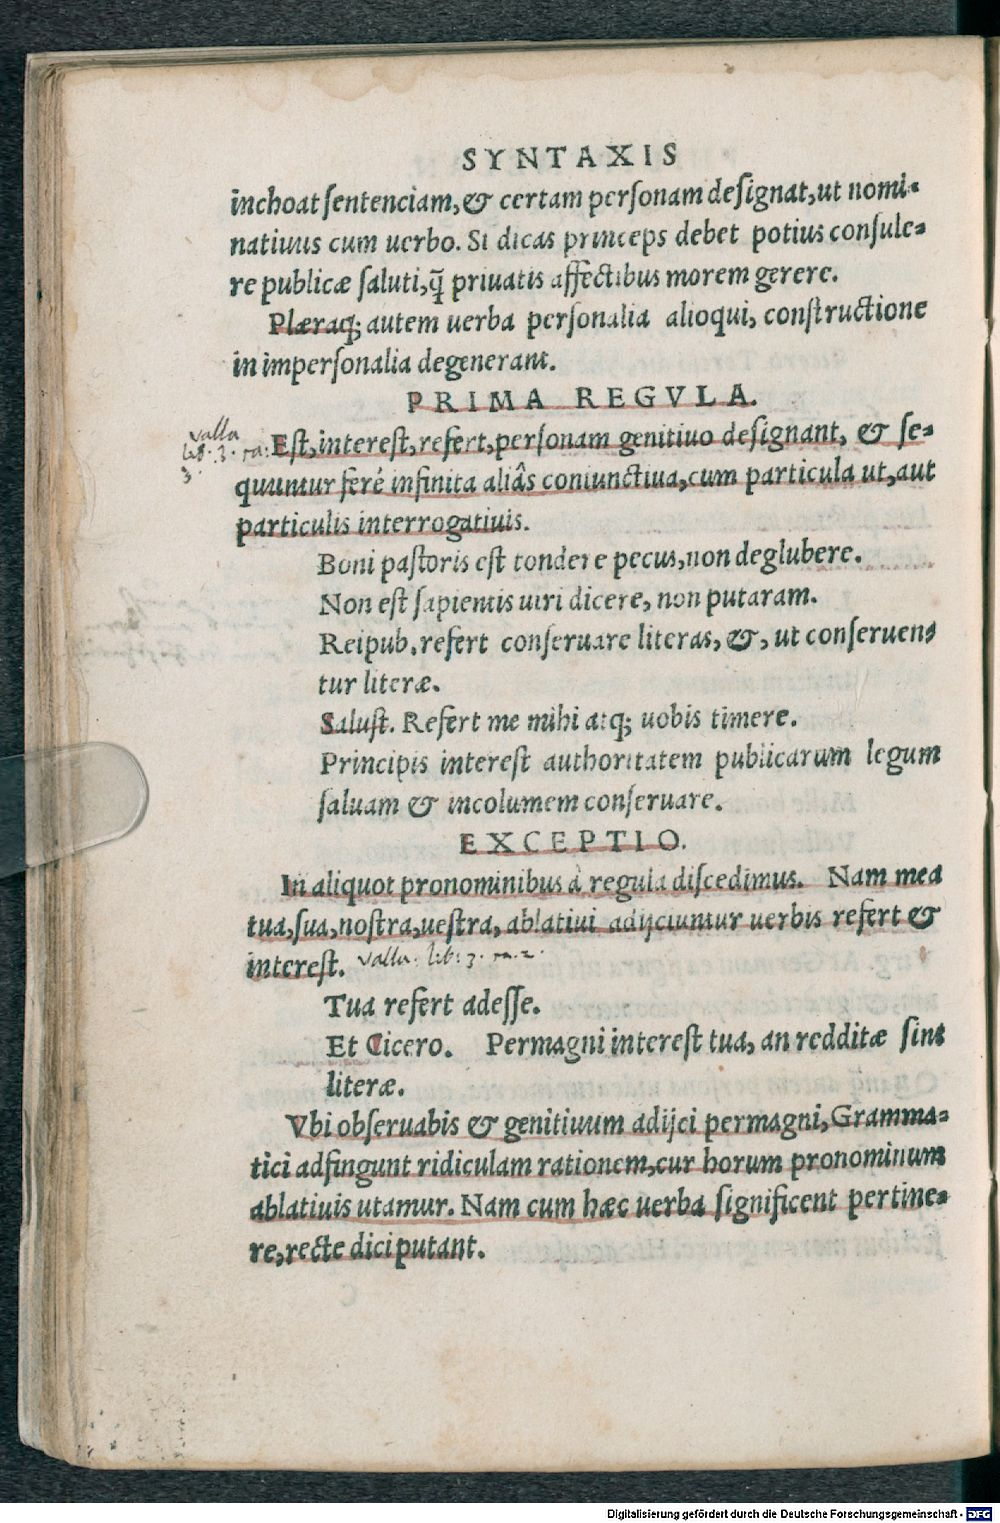 SYNTAXIS
inchoat sentenciam, & certam personam designat, ut nomi-
natiuus cum uerbo. Si dicas princeps debet potius consule-
re publicæ saluti, q̃ priuatis affectibus morem gerere.
Plæraq; autem uerba personalia alioqui, constructione
in impersonalia degenerant.
PRIMA REGVLA.
Valla
lib. 3. ca:
3.
Est, interest, refert, personam genitiuo designant, & se-
quuntur ferè infinita aliâs coniunctiua, cum particula ut, aut
particulis interrogatiuis.
Boni pastoris est tondere pecus, non deglubere.
Non est sapientis uiri dicere, non putaram.
Reipub. refert conseruare literas, &, ut conseruen-
tur literæ.
Salust. Refert me mihi atq; uobis timere.
Principis interest authoritatem publicarum legum
saluam & incolumem conseruare.
EXCEPTIO.
In aliquot pronominibus à regula discedimus. Nam mea
tua, sua, nostra, uestra, ablatiui adijciuntur uerbis refert &
interest. Valla. lib: 3. ca. 2.
Tua refert adesse.
Et Cicero. Permagni interest tua, an redditæ sint
literæ.
Vbi obseruabis & genitiuum adijci permagni, Gramma-
tici adfingunt ridiculam rationem, cur horum pronominum
ablatiuis utamur. Nam cum hæc uerba significent pertine-
re, recte dici putant.
Digitalisierung gefördert durch die Deutsche Forschungsgemeinschaft - DFG